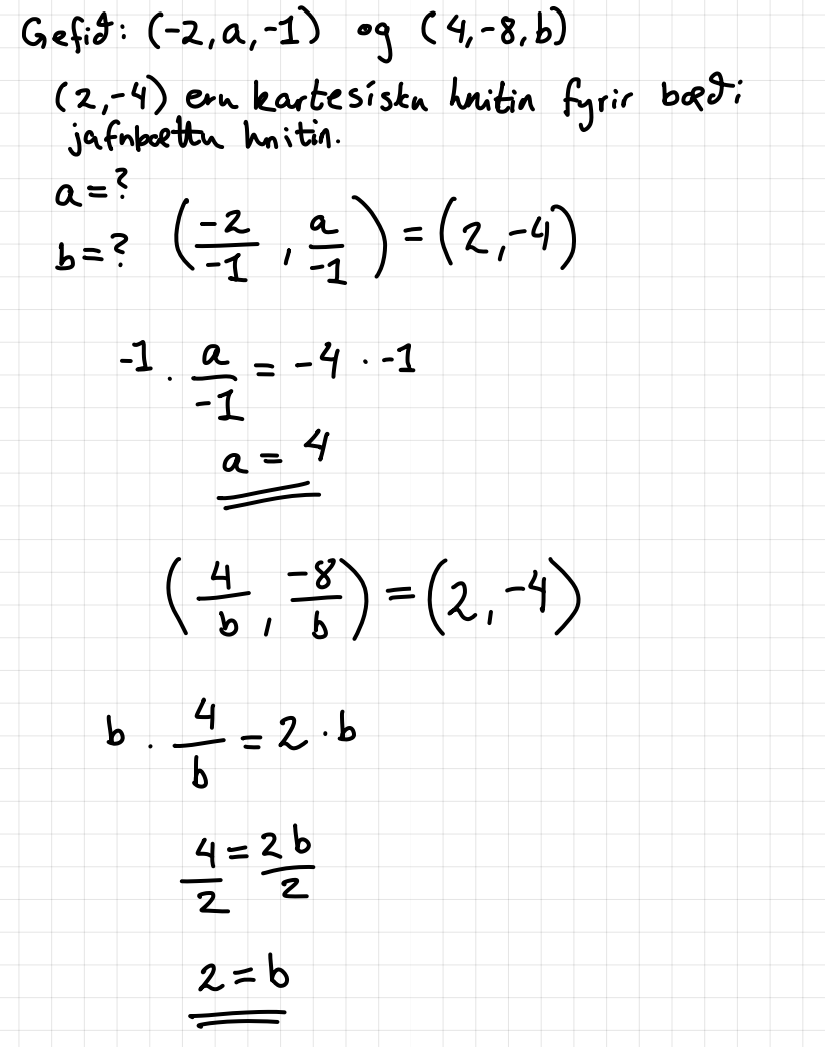 Gefið: (-2, a, -1) og (4, -8, b)
(2, -4) eru kartesísku hnitin fyrir bæði
jafnþættu hnitin.
a = ?
b = ?
(-2/-1, a/-1) = (2, -4)
-1 · a/-1 = -4 · -1
a = 4
(4/b, -8/b) = (2, -4)
b · 4/b = 2 · b
4/2 = 2b/2
2 = b